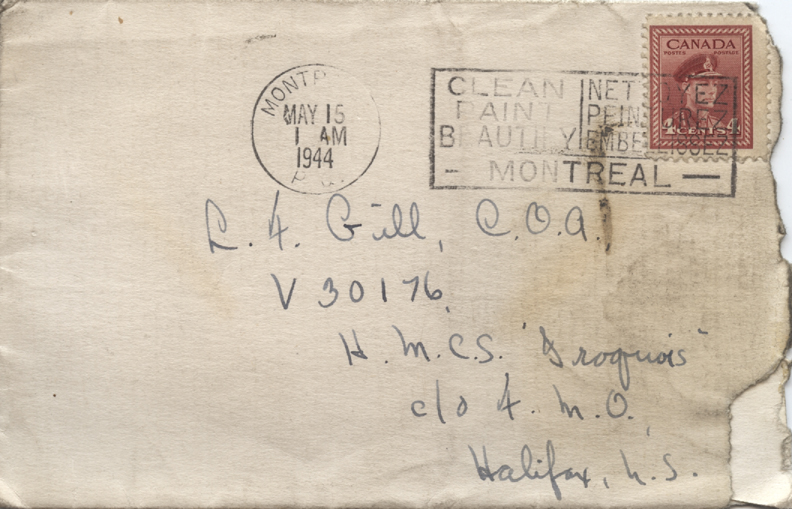 CANADA
POSTES POSTAGE
4 CENTS 4
MONTR
MAY 15
1 AM
1944
P.Q.
CLEAN NET EZ
PAINT PEIN EZ
BEAUTIFY EMBELLISSEZ
- MONTREAL -
L. F. Gill, C.O.A.,
V 30176,
H.M.C.S. "Iroquois"
c/o F.M.O.,
Halifax, N.S.